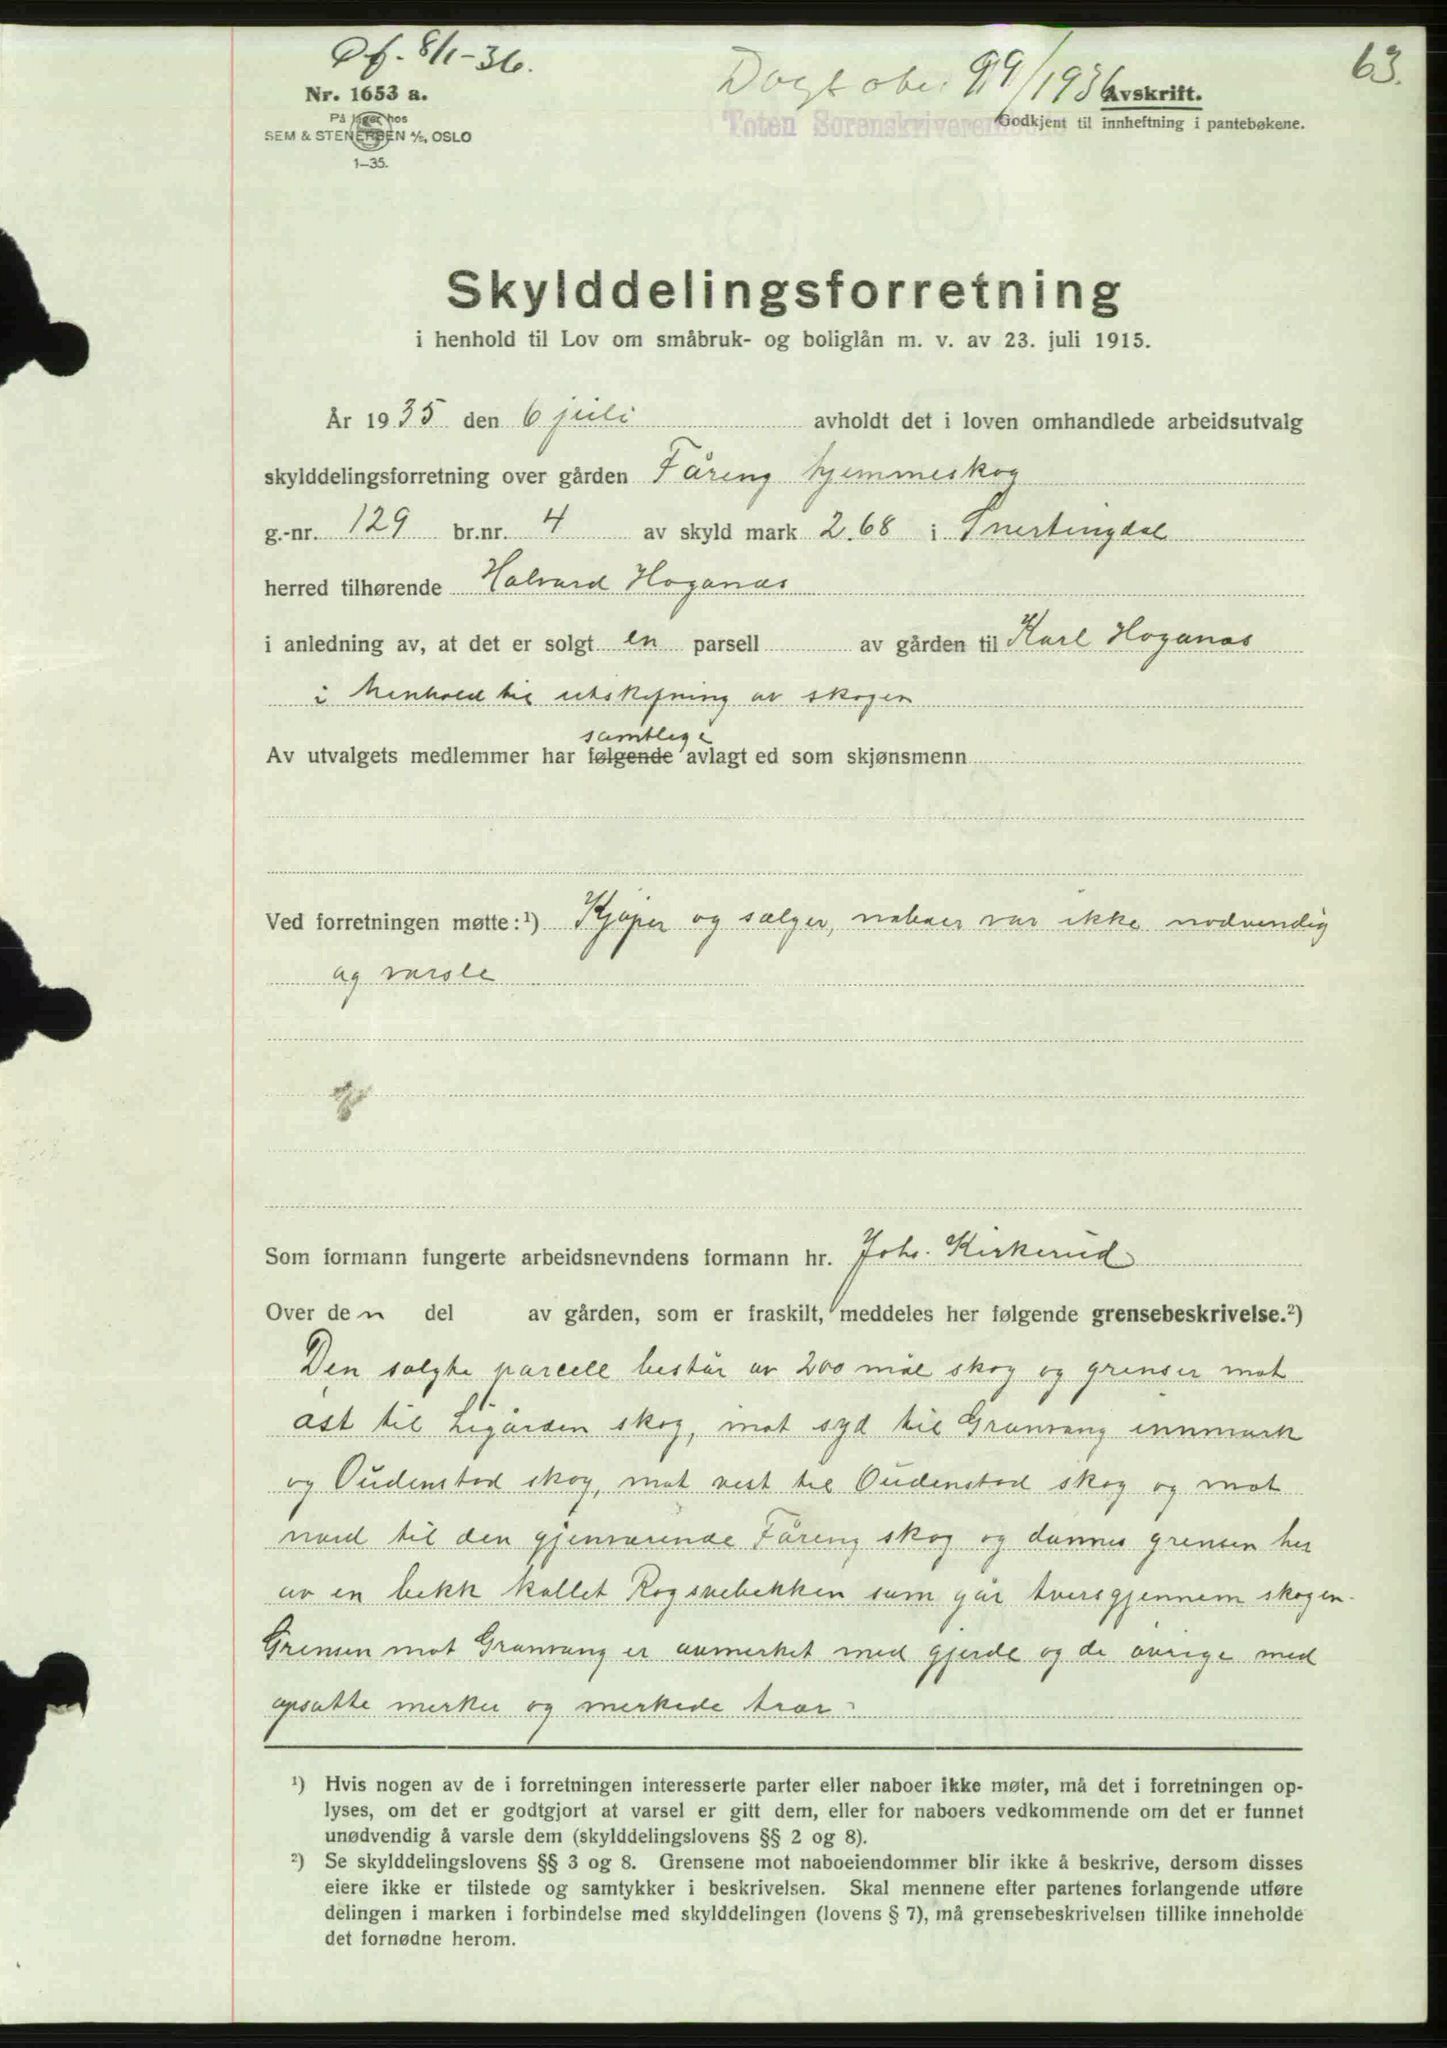 Of. 8/1-36.
Dagbok nr. 99/1936
63.
Nr. 1653 a.
Avskrift.
På lager hos
Toten Sorenskriverembede
Godkjent til innheftning i pantebøkene.
SEM & STENERSEN A/S, OSLO
1-35.
Skylddelingsforretning
i henhold til Lov om småbruk- og boliglån m. v. av 23. juli 1915.
År 1935 den 6 juli avholdt det i loven omhandlede arbeidsutvalg
skylddelingsforretning over gården Fåreng hjemmeskog
g.-nr. 129 br.nr. 4 av skyld mark 2.68 i Snertingdal
herred tilhørende Halvard Hoganæs
i anledning av, at det er solgt en parsell av gården til Karl Hoganæs
i henhold til utskifning av skogen
samtlige
Av utvalgets medlemmer har følgende avlagt ed som skjønsmenn
Ved forretningen møtte: ¹) Kjøper og sælger, naboer var ikke nødvendig
og varsle
Som formann fungerte arbeidsnevndens formann hr. Johs. Kirkerud
Over den del av gården, som er fraskilt, meddeles her følgende grensebeskrivelse.²)
Den solgte parcell består av 200 mål skog og grenser mot
øst til Ligården skog, mot syd til Granvang innmark
og Oudenstad skog, mot vest til Oudenstad skog og mot
nord til den gjenværende Fåreng skog og dannes grensen her
av en bekk kallet Rognebekken som går tversgjennem skogen.
Grensen mot Granvang er avmerket med gjerde og de øvrige med
opsatte merker og merkede trær.
¹) Hvis nogen av de i forretningen interesserte parter eller naboer ikke møter, må det i forretningen op-
lyses, om det er godtgjort at varsel er gitt dem, eller for naboers vedkommende om det er funnet
unødvendig å varsle dem (skylddelingslovens §§ 2 og 8).
²) Se skylddelingslovens §§ 3 og 8. Grensene mot naboeiendommer blir ikke å beskrive, dersom disses
eiere ikke er tilstede og samtykker i beskrivelsen. Skal mennene efter partenes forlangende utføre
delingen i marken i forbindelse med skylddelingen (lovens § 7), må grensebeskrivelsen tillike inneholde
det fornødne herom.